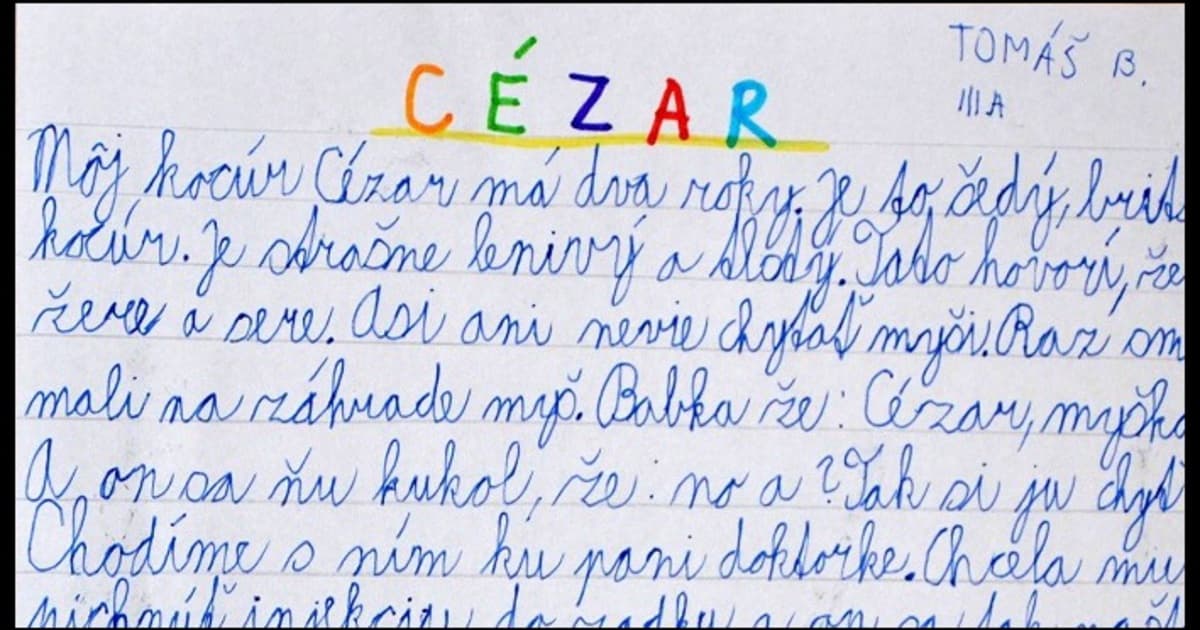 CÉZAR
TOMÁŠ B.
III A
Môj kocúr Cézar má dva roky. Je to šedý, brits
kocúr. Je strašne lenivý a tlstý. Tato hovorí, že
žere a sere. Asi ani nevie chytať myši. Raz sm
mali na záhrade myš. Babka že: Cézar, myška
A on sa ňu kukol, že: no a? Tak si ju chyť
Chodíme s ním ku pani doktorke. Chcela mu
pichnúť injekciu do zadku a on sa tak